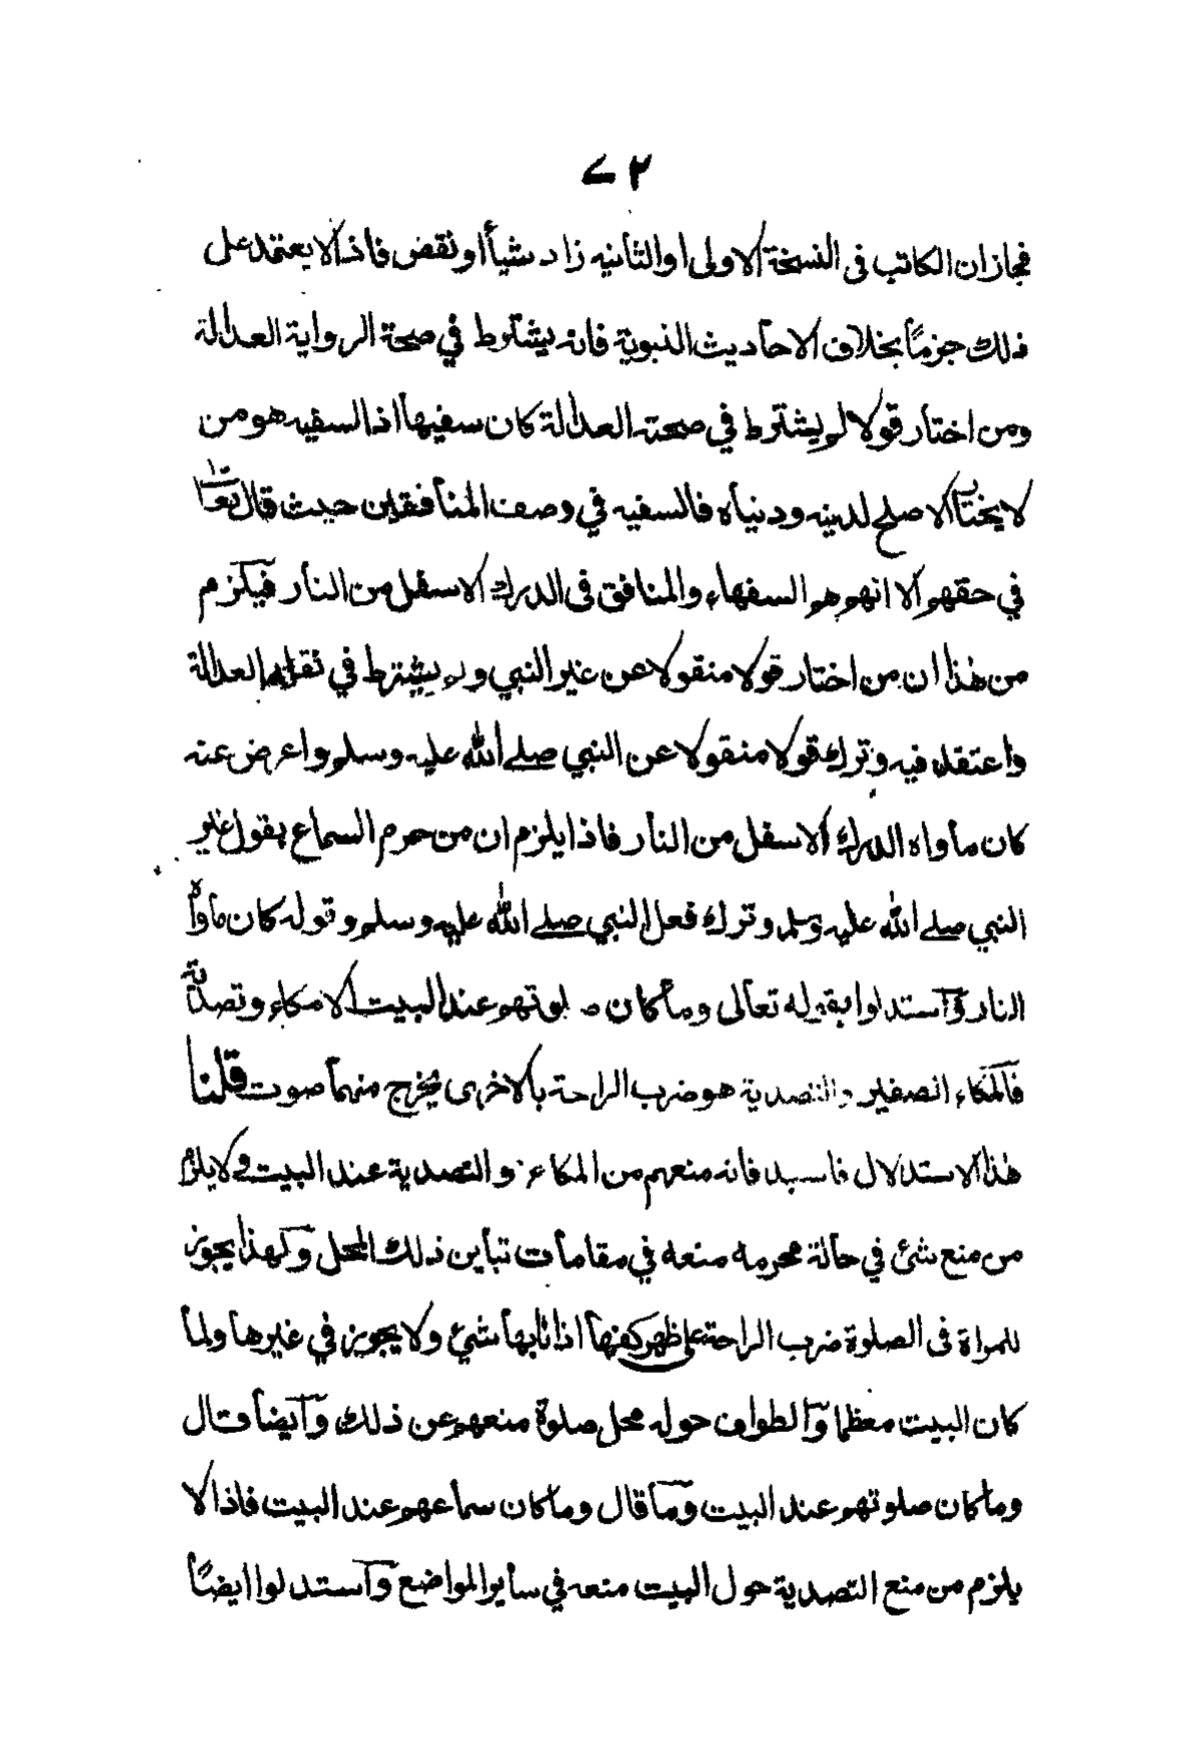 ٧٢
فجاز ان الكاتب فى النسخة الاولى او الثانيه زاد شيأ او نقض فاذا لا يعتمد على
ذلك جزماً بخلاف الاحاديث النبوية فانه يشترط في صحة الرواية العدالة
ومن اختار قولا لم يشترط في صحته العدالة كان سفيها اذ السفيه هو من
لا يختار الاصلح لدينه ودنياه فالسفيه في وصف المنافقين حيث قال تعالى
في حقهم الا انهم هم السفهاء والمنافق فى الدرك الاسفل من النار فيلزم
من هذا ان من اختار قولا منقولا عن غير النبي ولم يشترط في نقله العدالة
واعتقد فيه وترك قولا منقولا عن النبي صلے الله عليه وسلم واعرض عنه
كان مأواه الدرك الاسفل من النار فاذا يلزم ان من حرم السماع بقول غير
النبي صلے الله عليه وسلم وترك فعل النبي صلے الله عليه وسلم وقوله كان مأواه
النار وآستدلوا بقوله تعالى وما كان صلوتهم عند البيت الا مكاء وتصدية
فالمكاء الصفير والتصدية هو ضرب الراحة بالاخرى يخرج منهما صوت قلنا
هذا الاستدلال فاسد فانه منعهم من المكاء والتصدية عند البيت ولا يلزم
من منع شئ في حالة محرمه منعه في مقامات تباين ذلك المحل وكهذا يجوز
للمراة فى الصلوة ضرب الراحة على ظهر كفها اذا نابها شئ ولا يجوز في غيرها ولما
كان البيت معظما والطواف حوله محل صلوة منعهم عن ذلك وآيضا قال
وما كان صلوتهم عند البيت وما قال وما كان سماعهم عند البيت فاذا لا
يلزم من منع التصدية حول البيت منعه في ساير المواضع وآستدلوا ايضاً